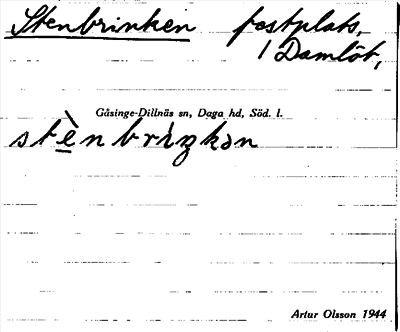 Stenbrinken festplats,
1 Damlöt,
Gåsinge-Dillnäs sn, Daga hd, Söd. l.
stὲnbrìŋkən
Artur Olsson 1944